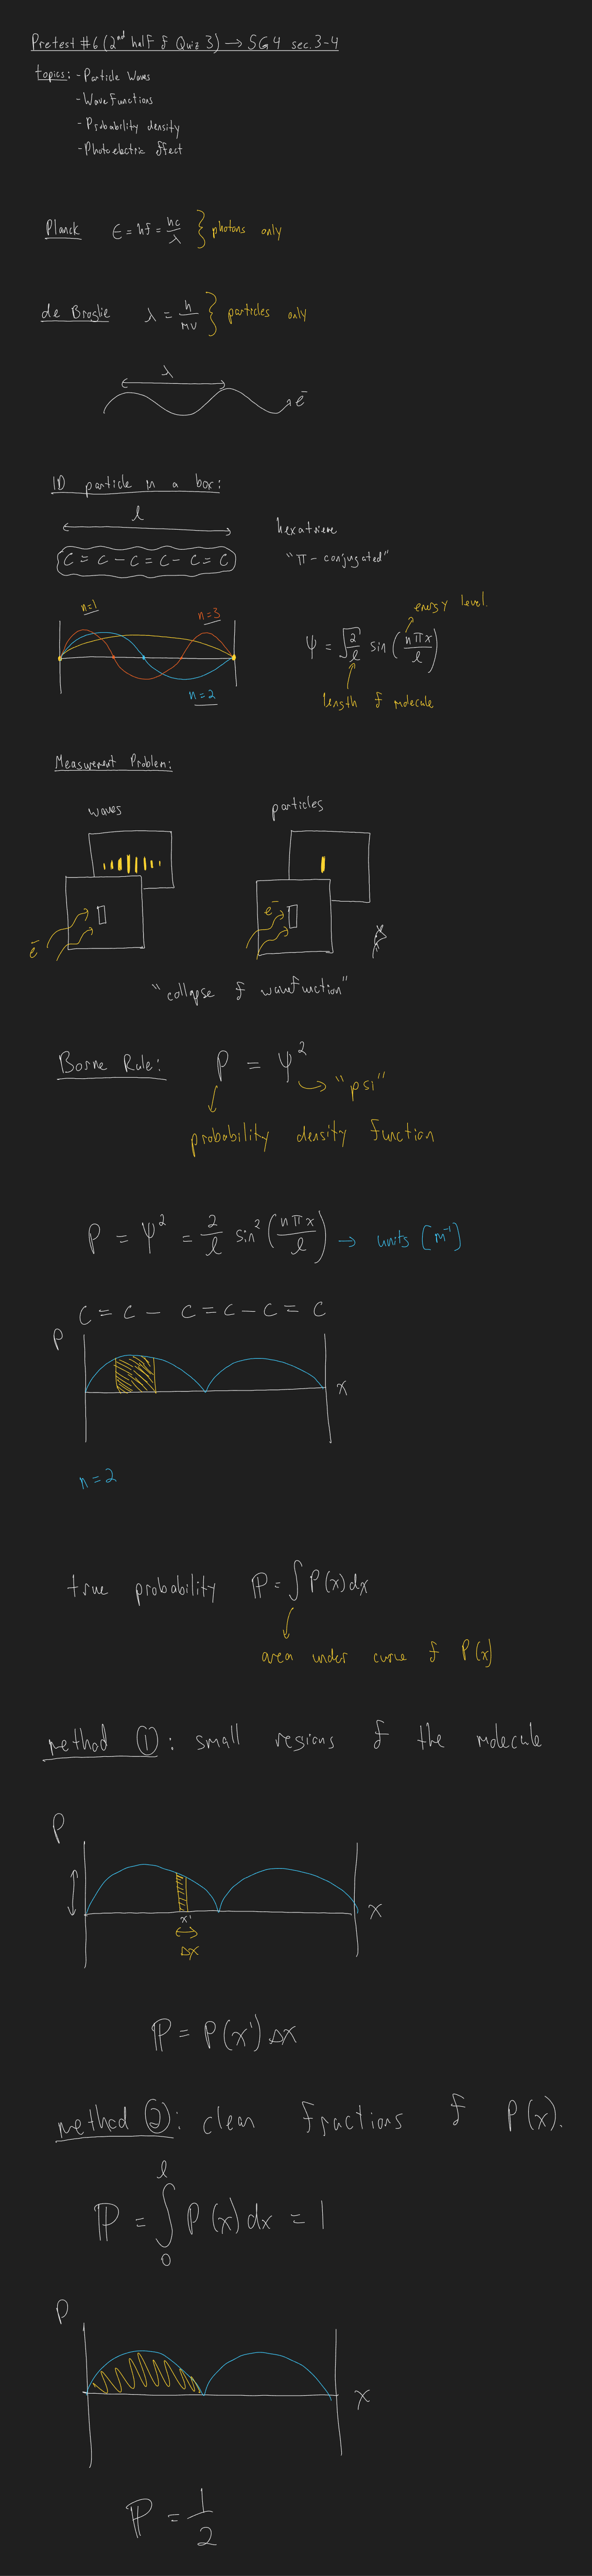 Pretest #6 (2nd half of Quiz 3) → SG4 sec. 3-4
topics: - Particle Waves
- Wavefunctions
- Probability density
- Photoelectric Effect
Planck E = hf = hc/λ } photons only
de Broglie λ = h/mv } particles only
λ
e⁻
1D particle in a box:
l
C = C - C = C - C = C
hexatriene
"π-conjugated"
n=1
n=3
n=2
energy level.
ψ = √(2/l) sin (nπx/l)
length of molecule
Measurement Problem:
waves particles
e⁻ e⁻
"collapse of wavefunction"
Borne Rule: P = ψ² → "psi"
probability density function
P = ψ² = 2/l sin² (nπx/l) → units [m⁻¹]
C = C - C = C - C = C
P
x
n=2
true probability ℙ = ∫ P(x) dx
area under curve of P(x)
method ①: small regions of the molecule
P
x
x'
Δx
ℙ = P(x') Δx
method ②: clean fractions of P(x).
ℙ = ∫₀ˡ P(x) dx = 1
P
x
ℙ = 1/2